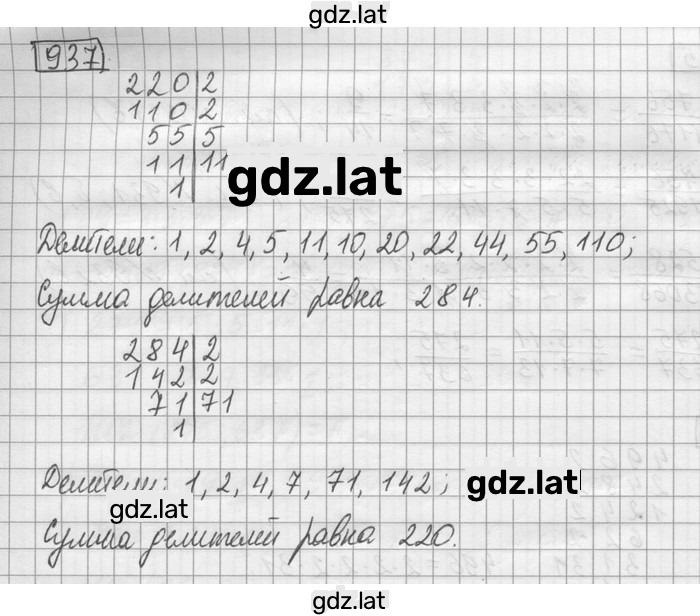 gdz.lat
937
220 2
110 2
55 5
11 11
1
gdz.lat
Делители: 1, 2, 4, 5, 11, 10, 20, 22, 44, 55, 110;
Сумма делителей равна 284.
284 2
142 2
71 71
1
Делители: 1, 2, 4, 7, 71, 142;
gdz.lat
gdz.lat
Сумма делителей равна 220.
gdz.lat